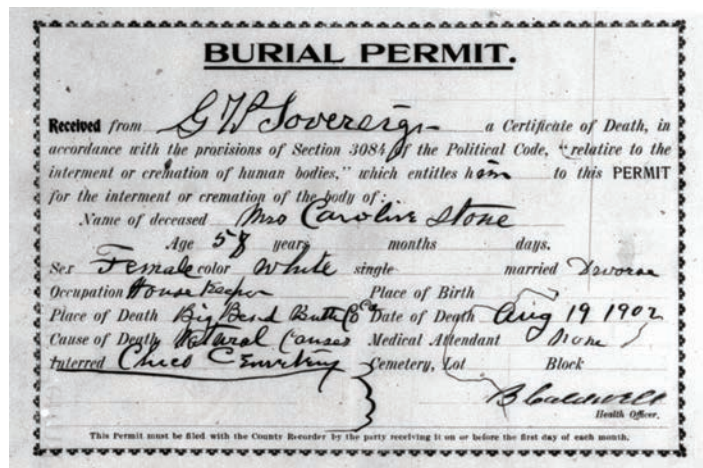 BURIAL PERMIT.
Received from G W Sovereign a Certificate of Death, in
accordance with the provisions of Section 3084 of the Political Code, "relative to the
interment or cremation of human bodies," which entitles him to this PERMIT
for the interment or cremation of the body of:
Name of deceased Mrs Caroline Stone
Age 58 years months days.
Sex Female color White single married Divorse
Occupation House Keeper Place of Birth
Place of Death Big Bend Butte Co Date of Death Aug 19 1902
Cause of Death Natural Causes Medical Attendant None
Interred Chico Cemetery Cemetery, Lot Block
B Caldwell
Health Officer.
This Permit must be filed with the County Recorder by the party receiving it on or before the first day of each month.